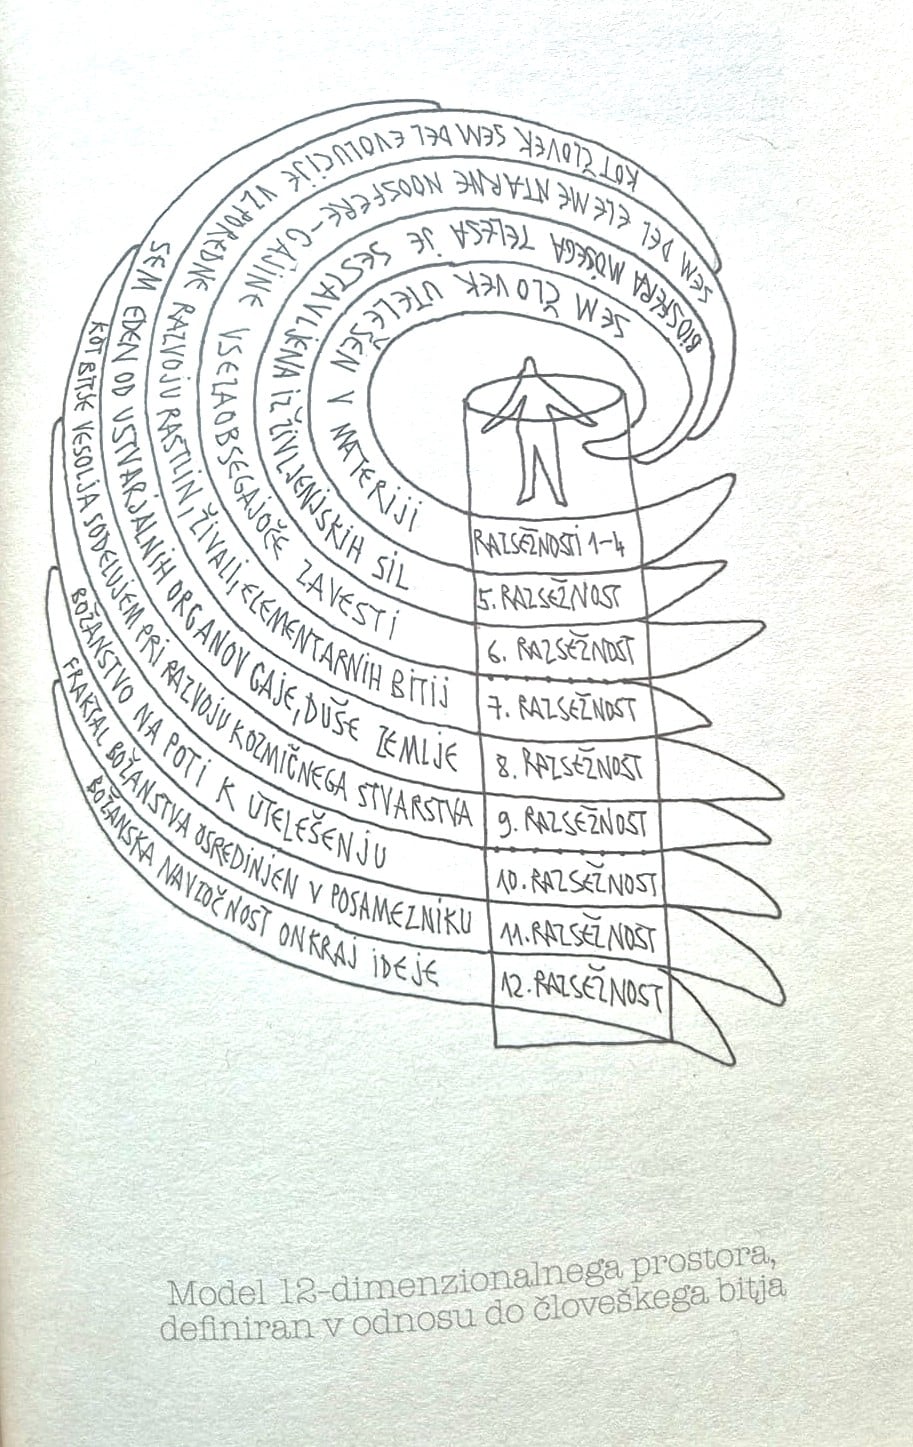 SEM ČLOVEK UTELEŠEN V MATERIJI
RAZSEŽNOSTI 1-4
BIOSFERA MOJEGA TELESA JE SESTAVLJENA IZ ŽIVLJENJSKIH SIL
5. RAZSEŽNOST
SEM DEL ELEMENTARNE NOOSFERE-GAJINE VSEZAOBSEGAJOČE ZAVESTI
6. RAZSEŽNOST
KOT ČLOVEK SEM DEL EVOLUCIJE VZPOREDNE RAZVOJU RASTLIN, ŽIVALI, ELEMENTARNIH BITIJ
7. RAZSEŽNOST
SEM EDEN OD USTVARJALNIH ORGANOV GAJE, DUŠE ZEMLJE
8. RAZSEŽNOST
KOT BITJE VESOLJA SODELUJEM PRI RAZVOJU KOZMIČNEGA STVARSTVA
9. RAZSEŽNOST
BOŽANSTVO NA POTI K UTELEŠENJU
10. RAZSEŽNOST
FRAKTAL BOŽANSTVA OSREDINJEN V POSAMEZNIKU
11. RAZSEŽNOST
BOŽANSKA NAVZOČNOST ONKRAJ IDEJE
12. RAZSEŽNOST
Model 12-dimenzionalnega prostora,
definiran v odnosu do človeškega bitja